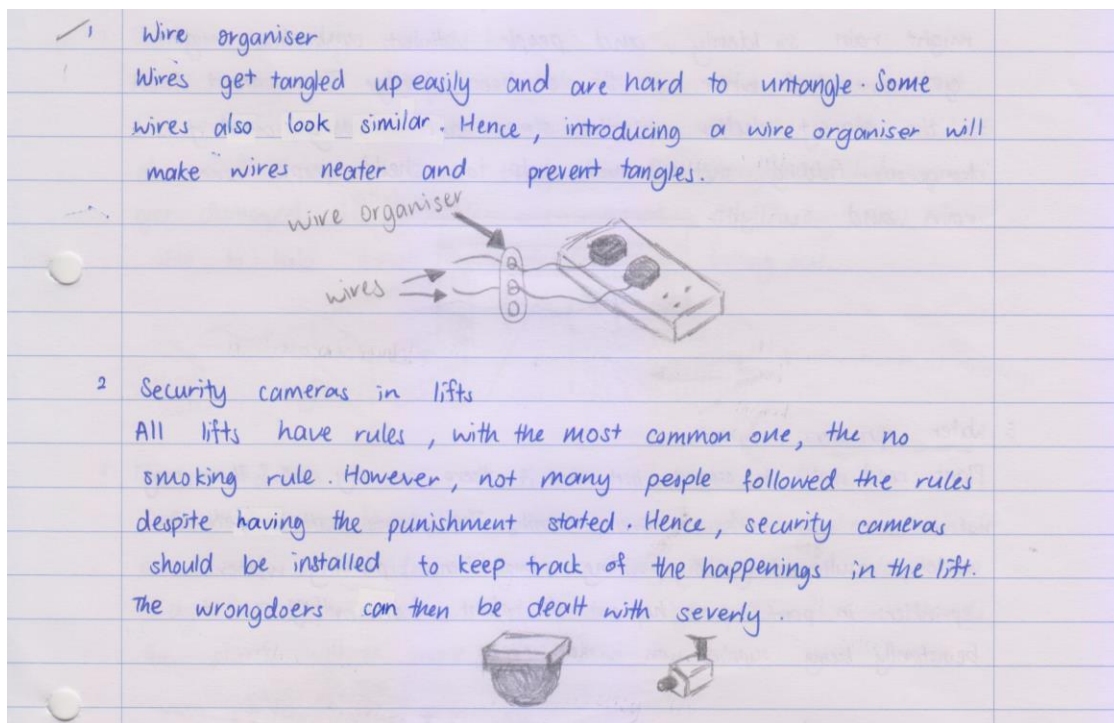 1 Wire organiser
Wires get tangled up easily and are hard to untangle. Some
wires also look similar. Hence, introducing a wire organiser will
make wires neater and prevent tangles.
wire organiser
wires
2 Security cameras in lifts
All lifts have rules, with the most common one, the no
smoking rule. However, not many people followed the rules
despite having the punishment stated. Hence, security cameras
should be installed to keep track of the happenings in the lift.
The wrongdoers can then be dealt with severly.